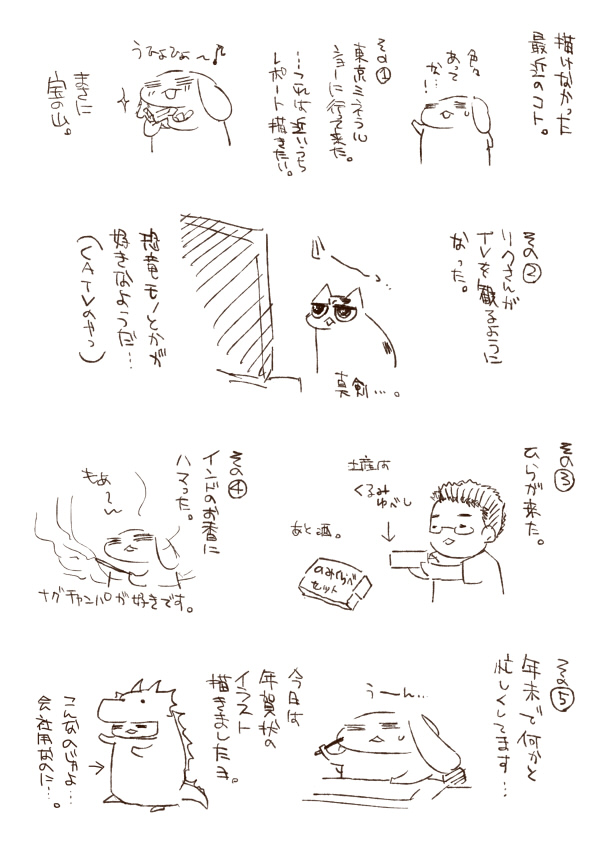 描けなかった
最近のコト。
色々
あって
な…!
その①
東京ミネラル
ショーに行って来た。
…これは近いうち
レポート描きたい。
うひょひょ〜♪
まさに
宝の山。
その②
リクさんが
TVを観るように
なった。
真剣…。
恐竜モノとかが
好きなようだ…
(CATVのやつ)
その③
ひらが来た。
土産は
くるみ
ゆべし
あと酒。
のみくらべ
セット
その④
インドのお香に
ハマった。
もぁ
〜ん
ナグチャンパが好きです。
その⑤
年末で何かと
忙しくしてます…
う〜ん…
今日は
年賀状の
イラスト
描きましたョ。
こんなのじゃよ…
会社用なのに…。